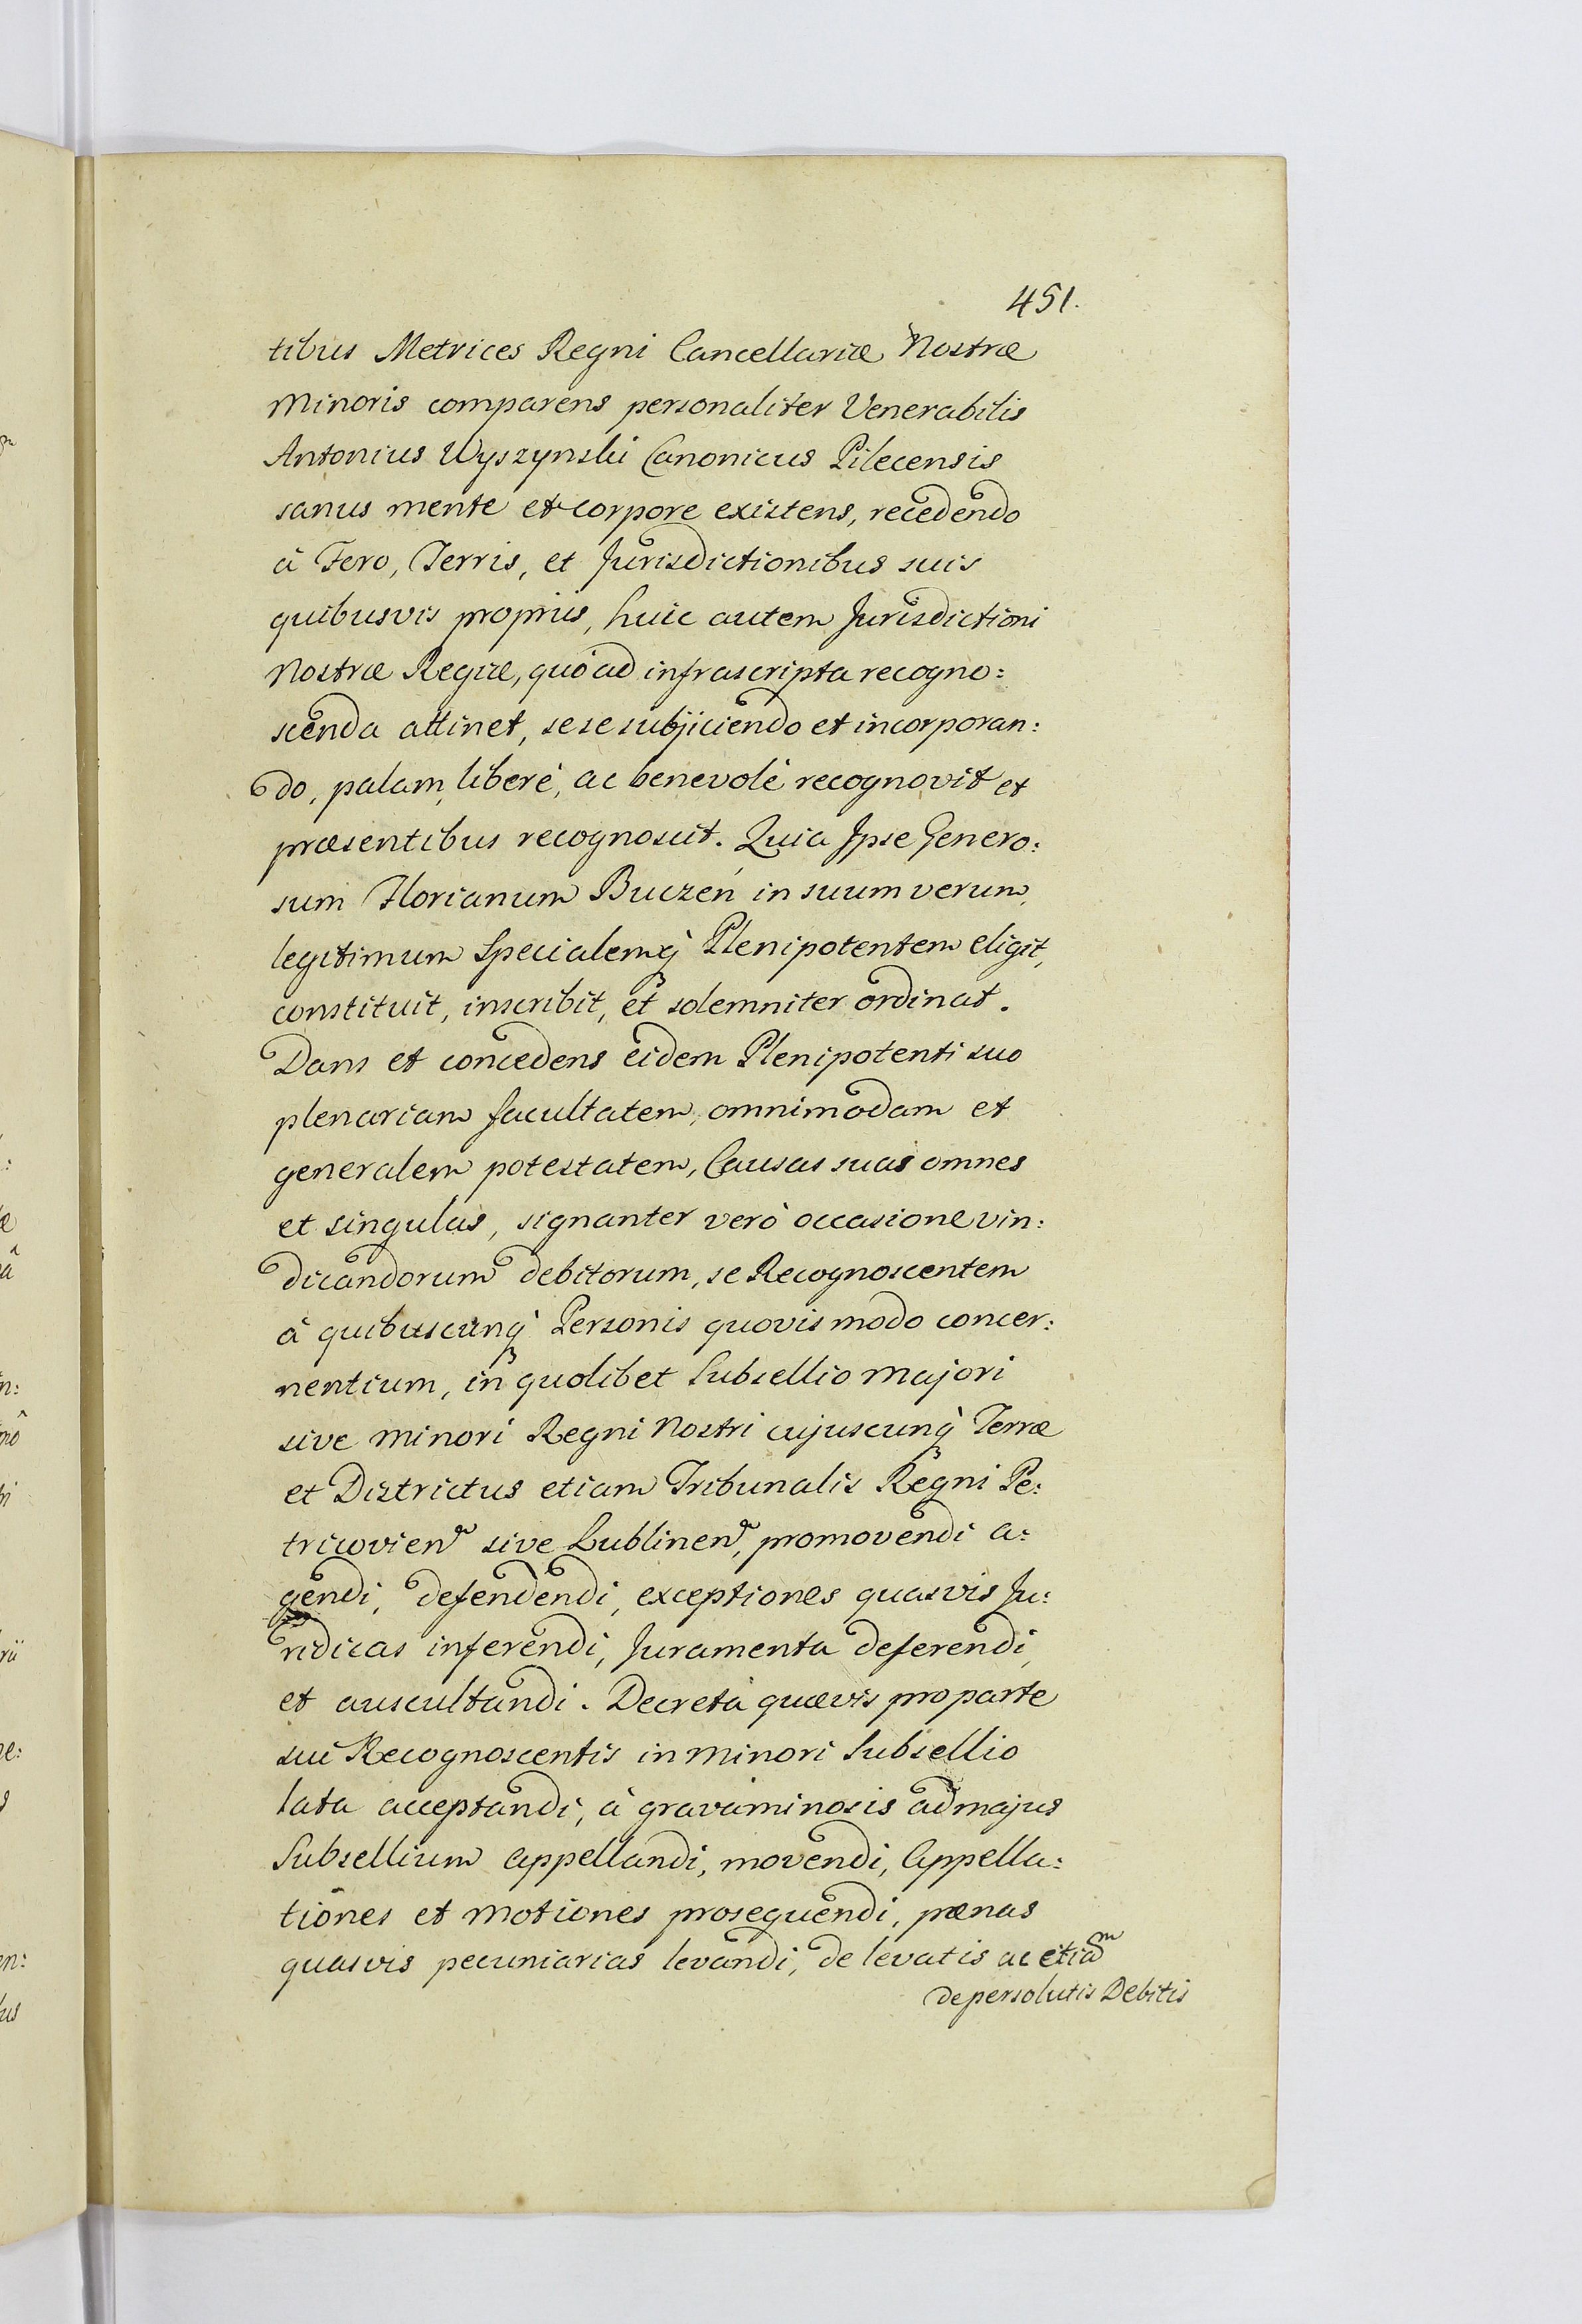 451.
tibus Metrices Regni Cancellariæ Nostræ
Minoris comparens personaliter Venerabilis
Antonius Wyszynski Canonicus Pilecensis
sanus mente et corpore existens, recedendo
à Fero, Terris, et Jurisdictionibus suis
quibusvis propriis, huic autem Jurisdictioni
Nostræ Regiæ, quò ad infrascripta recogno:
scenda attinet, se se subjiciendo et incorporan:
do, palam, liberè, ac benevolè recognovit et
præsentibus recognoscit. Quia Ipse Genero:
sum Florianum Buczeń in suum verum,
legitimum Specialemq́ Plenipotentem eligit,
constituit, inscribit, et solemniter ordinat.
Dans et concedens eidem Plenipotenti suo
plenariam facultatem, omnimodam et
generalem potestatem, Causas suas omnes
et singulas, signanter verò occasione vin:
dicandorum debitorum, se Recognoscentem
à quibuscunq́ Personis quovis modo concer:
nentium, in quolibet Subsellio Majori
sive Minori Regni Nostri cujuscunq́ Terræ
et Districtus etiam Tribunalis Regni Pe:
tricovien sive Lublinen, promovendi a:
gendi, defendendi, exceptiones quasvis Ju:
ridicas inferendi, Juramenta deferendi,
et auscultandi. Decreta quævis pro parte
sui Recognoscentis in Minori Subsellio
lata acceptandi, à gravaminosis ad majus
Subsellium appellandi, movendi, Appella:
tiones et Motiones prosequendi, pænas
quasvis pecuniarias levandi, de levatis ac etiam
de persolutis Debitis